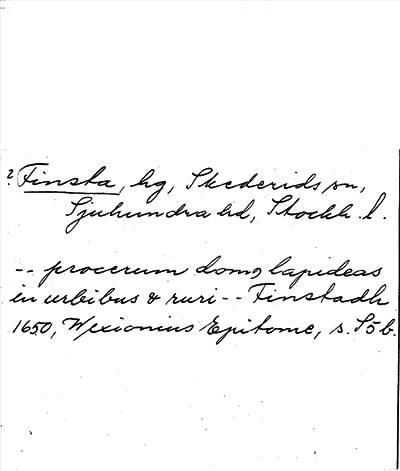 ? Finsta, hg, Skederids sn,
Sjuhundra hd, Stockh. l.
-- procerum domꝰ lapideas
in urbibus & ruri -- Finstadh
1650, Wexionius Epitome, s. S5b.